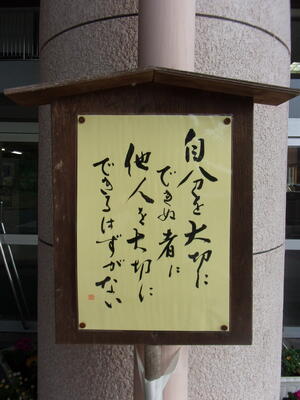 自分を大切に
できぬ者に
他人を大切に
できるはずがない